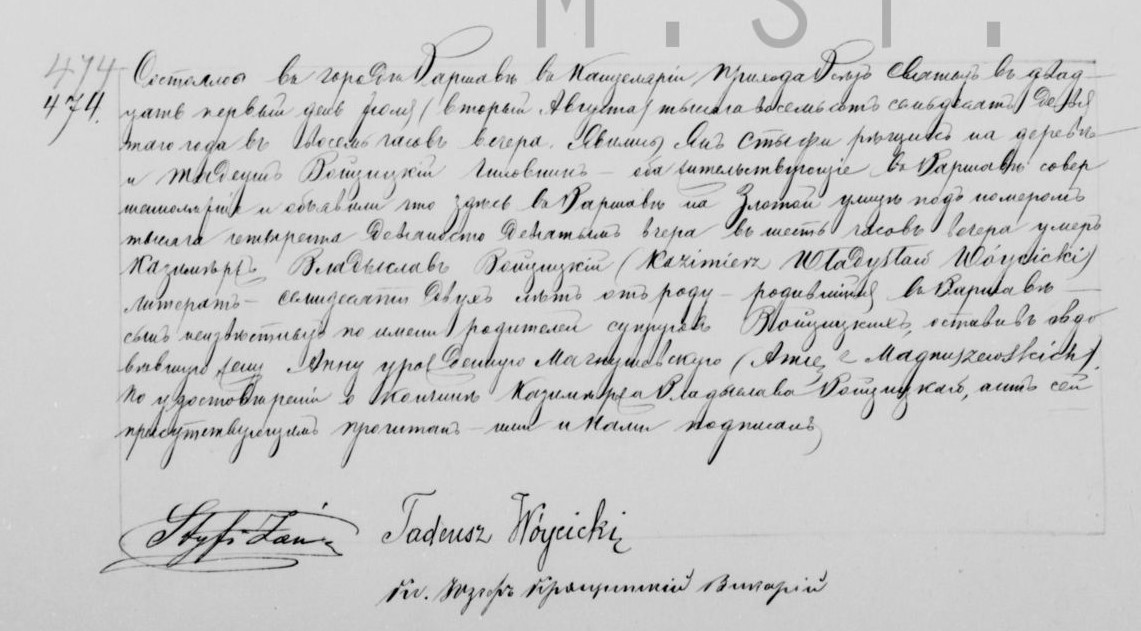 М.ST.
474
474.
Состоялось въ городѣ Варшавѣ въ Канцеляріи Прихода Всѣхъ Святыхъ въ двад-
цать первый день Іюля (второй Августа) тысяча восемьсотъ семьдесятъ девя
таго года въ восемь часовъ вечера. Явились Янъ Стыфи рѣщикъ на деревѣ
и Тадеушъ Войцицкій чиновникъ – оба жительствующіе въ Варшавѣ совер
шеннолѣтніе и объявили что здѣсь въ Варшавѣ на Злотой улицѣ подъ номеромъ
тысяча четыреста девяносто девятымъ вчера въ шесть часовъ вечера умеръ
Казимѣръ Владыславъ Войцицкій (Kazimierz Władysław Wóycicki)
литератъ – семидесяти двухъ лѣтъ отъ роду – родившійся въ Варшавѣ –
сынъ неизвѣстныхъ по имени родителей супруговъ Войцицкихъ, оставивъ овдо
вѣвшую жену Анну урожденную Магнушевскую (Annę z Magnuszewskich).
По удостовѣреніи о кончинѣ Казимѣра Владыслава Войцицкаго, актъ сей
присутствующимъ прочитанъ – ими и Нами подписанъ
Styfi Jan
Tadeusz Wóycicki
Кс. Юзефъ Викарій